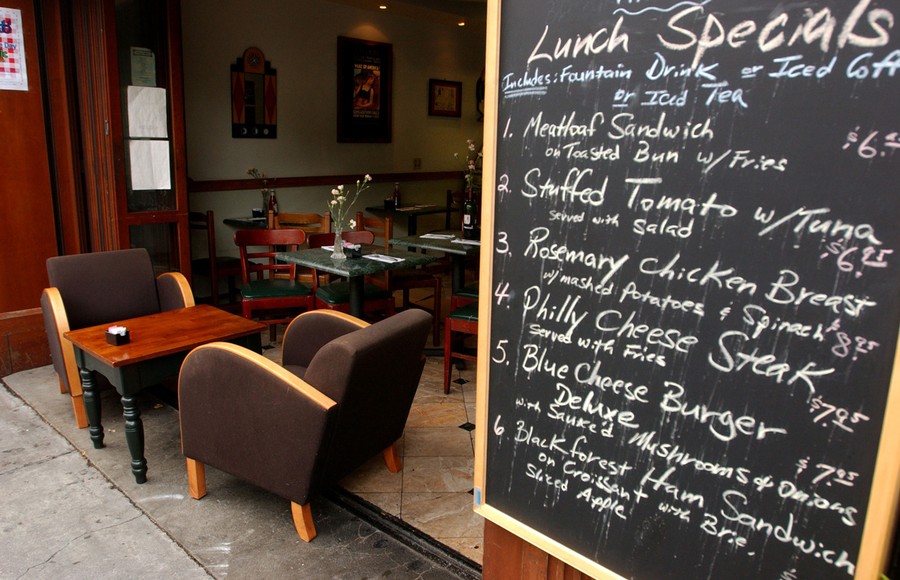 Lunch Specials
Includes: Fountain Drink or Iced
or Iced Tea
1. Meatloaf Sandwich
on Toasted Bun w/ Fries
2. Stuffed Tomato w/ Tuna
Served with Salad $6.95
3. Rosemary Chicken Breast
w/ mashed Potatoes & Spinach $8.95
4. Philly Cheese Steak
Served with Fries $7.95
5. Blue Cheese Burger
Deluxe $7.95
with Sauked Mushrooms & Onions
6. Blackforest Ham Sandwich
on Croissant with Brie,
Sliced Apple